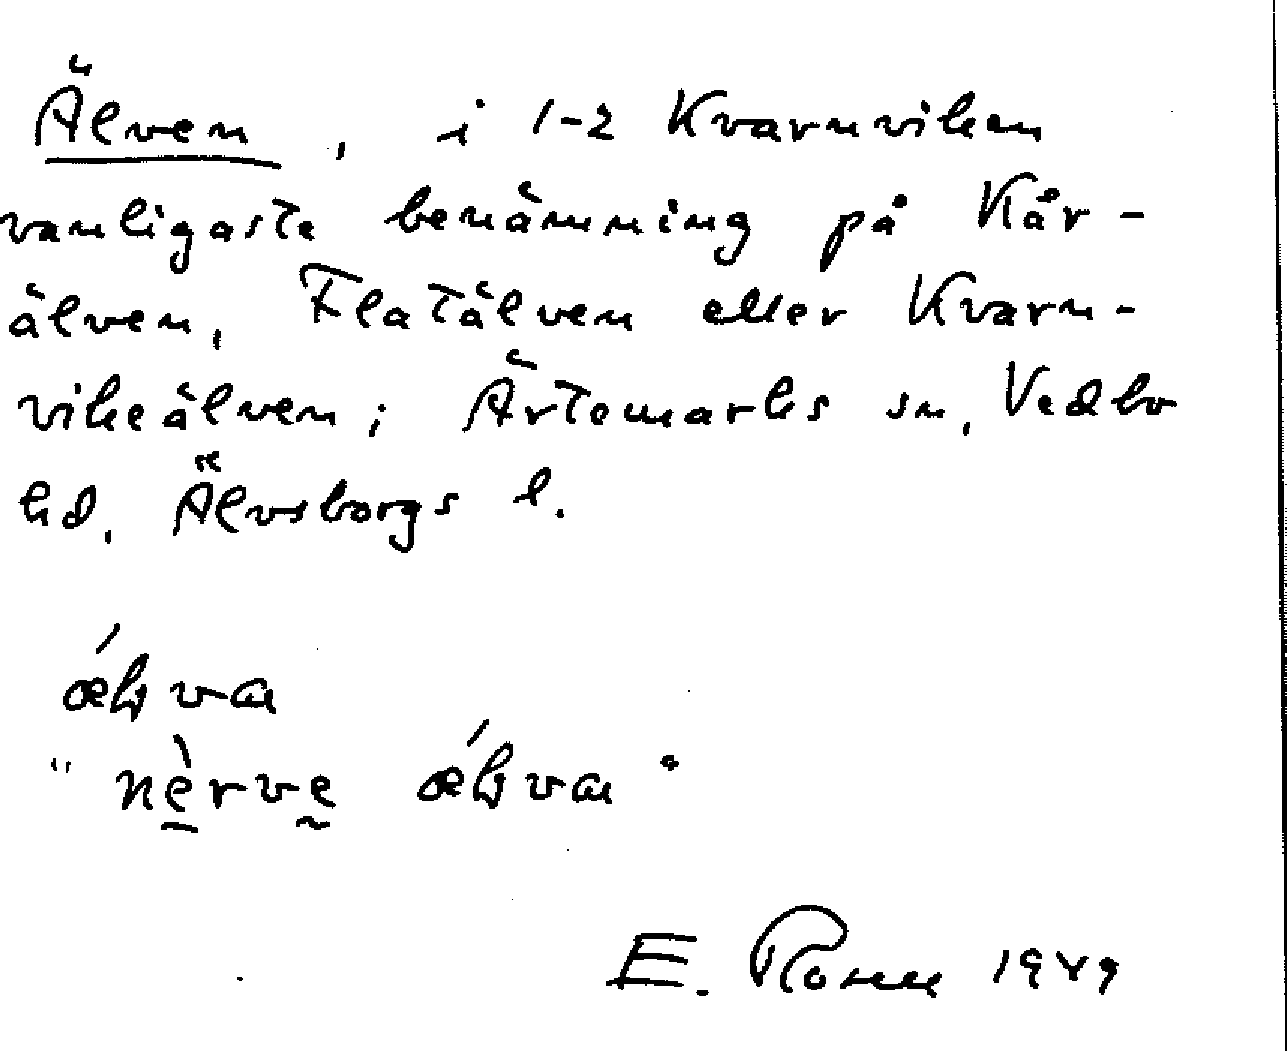 Älven, i 1-2 Kvarnviken
vanligaste benämning på Kår-
älven, Flatälven eller Kvarn-
vikeälven; Ärtemarks sn, Vedbo
hd, Älvsborgs l.
E. Ronu 1949